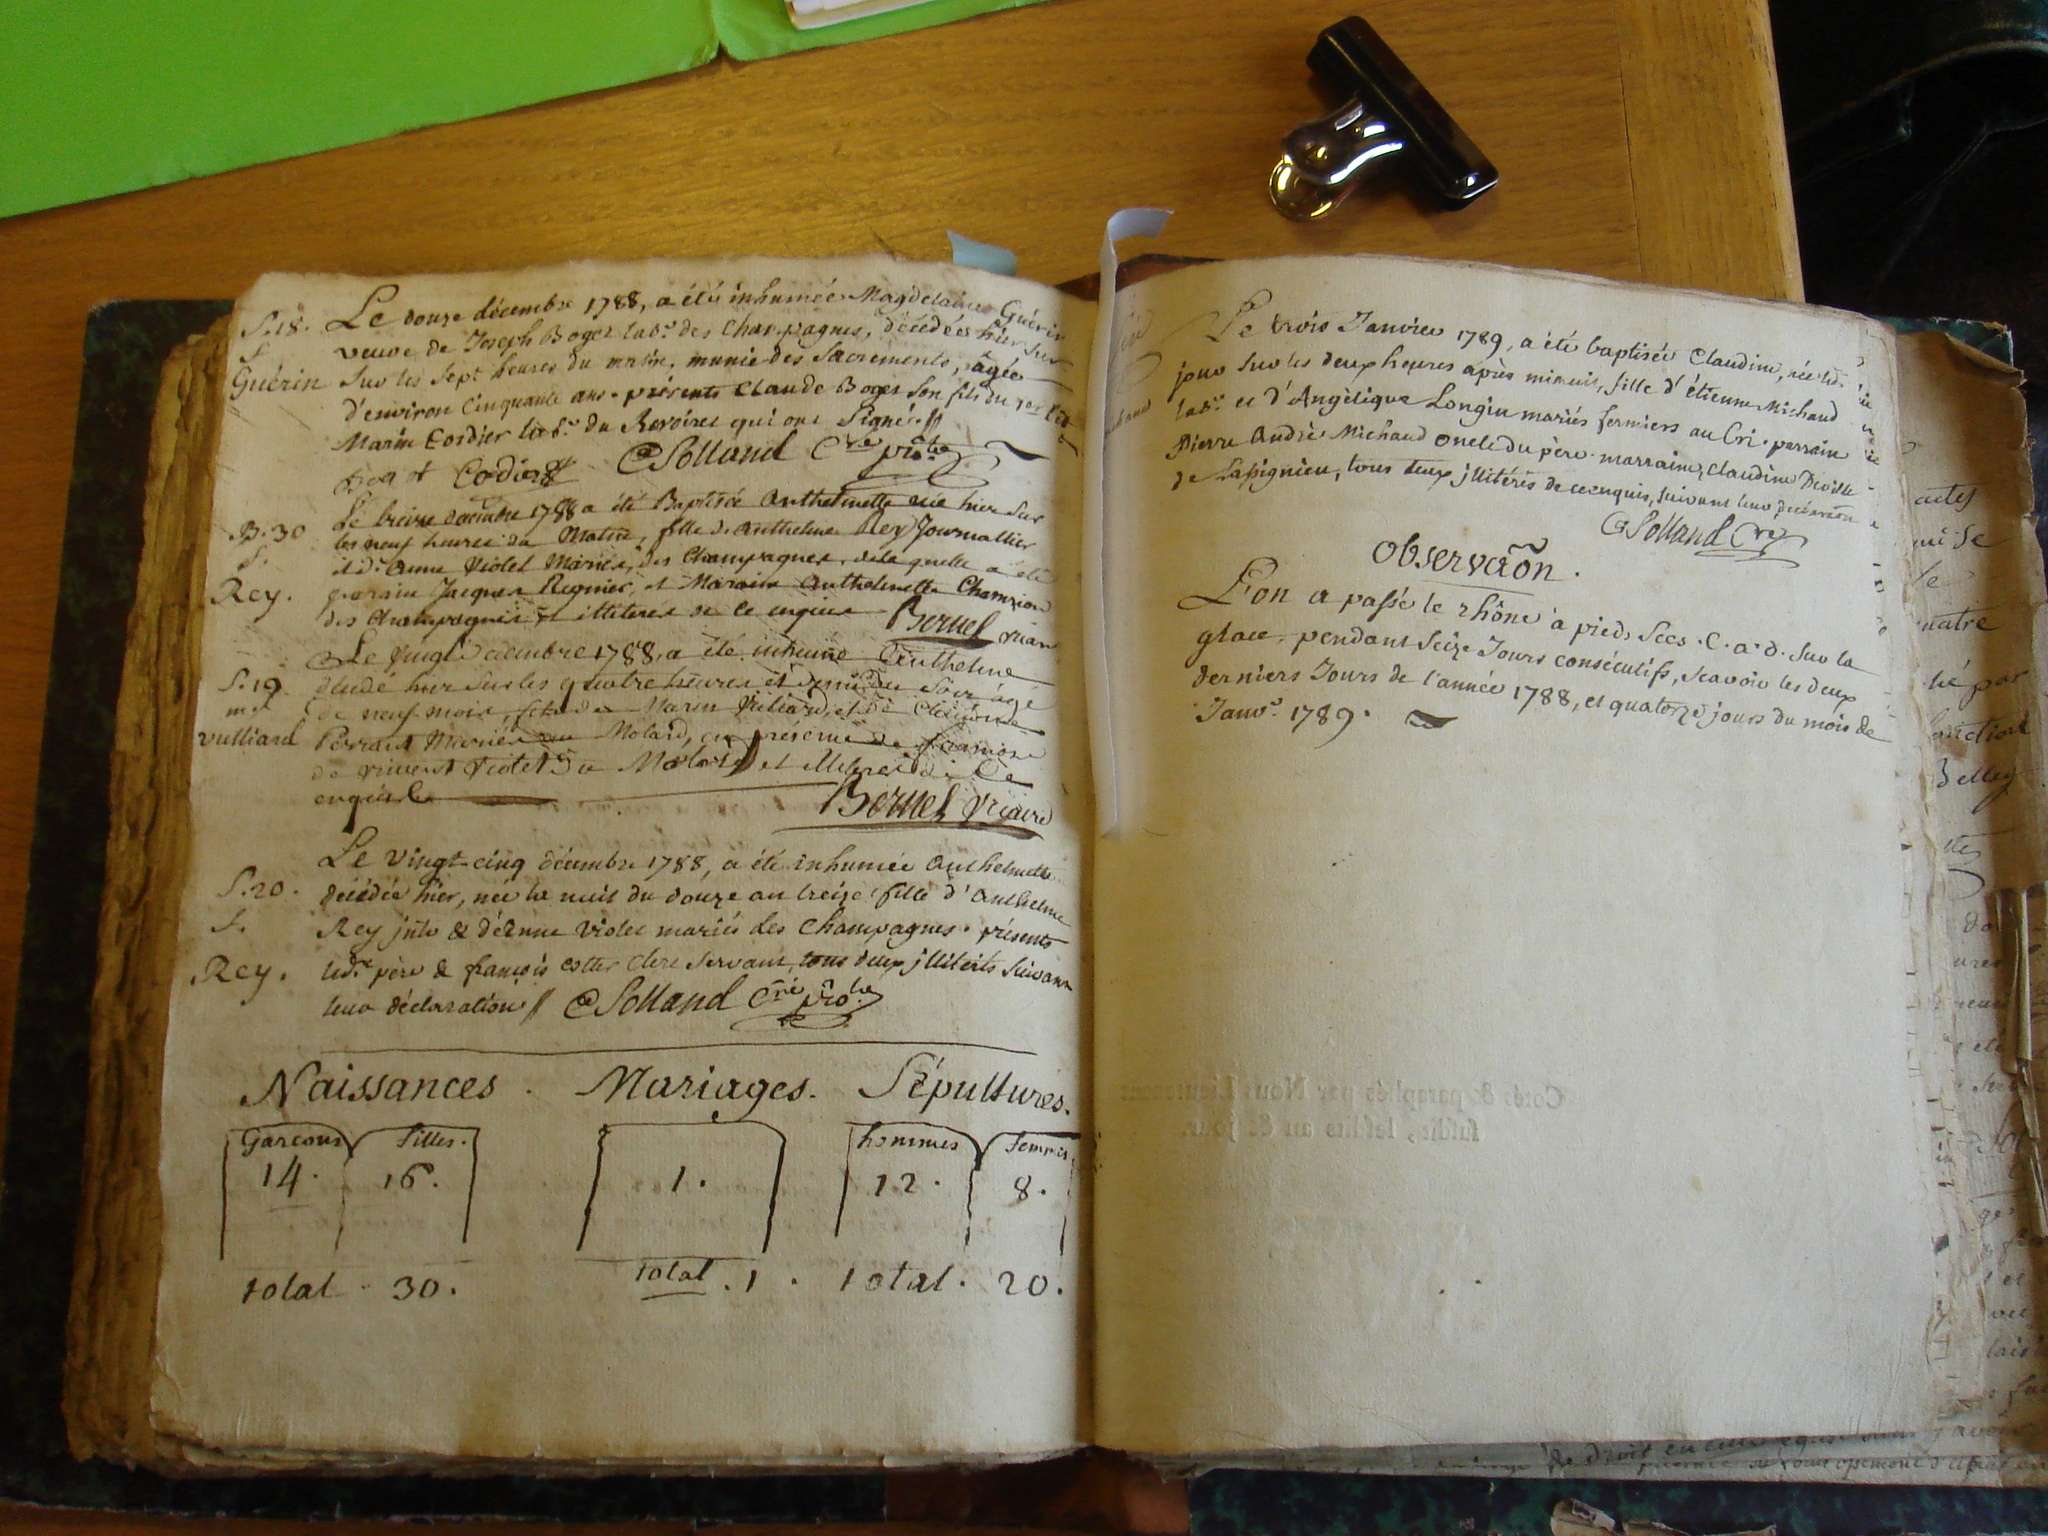 Le douze décembre 1788, a été inhumée Magdelaine Guérin
S.18.
veuve de Joseph Boget lab.r des Champagnes, décédée hier
S.
Guérin
sur les sept heures du matin, munie des sacrements, âgée
d'environ cinquante ans. présents Claude Boget son fils du
Marin Cordier lab.r du Revoiret qui ont signé. //
Boget Cordier Solland C.re
Le treize décembre 1788 a été Baptisée Anthelmette née hier sur
B.30
les neuf heures du Matin, fille de Anthelme Rey Journallier
S.
et d'. Anne Violet Mariés, des Champagnes, de la quelle a été
Rey.
parain Jacques Regnier, et Maraine Anthelmette Champion
des Champagnes et illiteres de ce enquis Bernel vicaire
Le vingt décembre 1788, a été inhumé Anthelme
S.19
décédé hier sur les quatre heures et demi du soir âgé
m.
de neuf mois, fils de Marin Vulliard, et de
vulliard
Perraut Mariés au Molard, en presence de
de vincent Violet du Molard et illiterés de Ce
enquis
Bernel vicaire
Le vingt-cinq décembre 1788, a été inhumée Anthelmette
S.20.
décédée hier, née la nuit du douze au treize fille d'Anthelme
S.
Rey & d'Anne Violet mariés des Champagnes. présents
Rey.
led. père & françois cottet clerc servant, tous deux jllitérés suivant
leur déclaration // Solland C.ré
Naissances . Mariages. Sépultures.
Garçons filles. hommes femmes
14. 16. 1. 12. 8.
total. 30. total. 1. total. 20.
Le trois Janvier 1789, a été baptisée Claudine, née led.
jour sur les deux heures après minuit, fille d'étienne Michaud
lab.r et d'Angélique Longin mariés fermiers au Cri. parrain
Pierre André Michaud oncle du père. marraine, Claudine
de Lassignieu, tous deux jllitérés de ce enquis, suivant leur déclaration
Solland C.ré
Observaõn.
L'on a passé le rhône à pieds secs. C. a. d. sur la
glace, pendant seize Jours consécutifs, sçavoir les deux
derniers Jours de l'année 1788, et quatorze jours du mois de
Janv.r 1789.